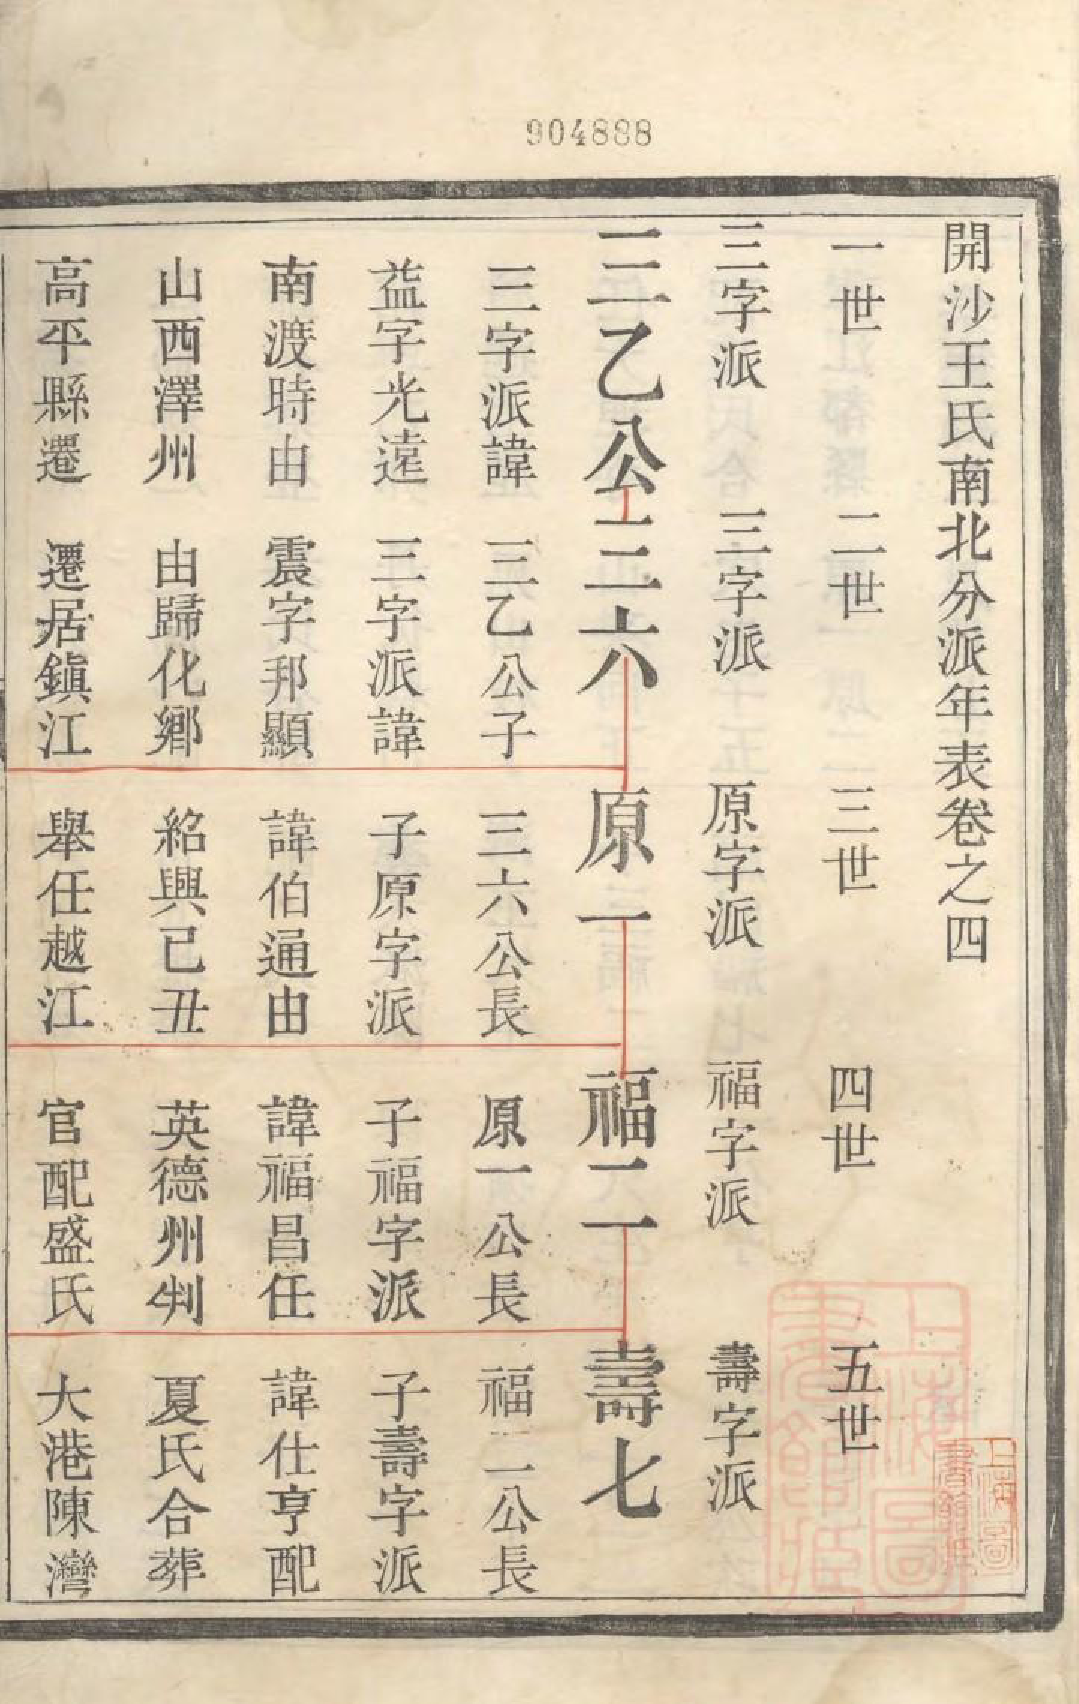 904888
開沙王氏南北分派年表卷之四
一世 二世 三世 四世 五世
三字派 三字派 原字派 福字派 壽字派
三乙公 三六 原一 福三 壽七
三字派諱 三乙公子 三六公長 原一公長 福三公長
益字光遠 三字派諱 子原字派 子福字派 子壽字派
南渡時由 震字邦顯 諱伯通由 諱福昌任 諱仕亨配
山西澤州 由歸化鄉 紹興己丑 英德州判 夏氏合葬
高平縣遷 遷居鎮江 舉任越江 官配盛氏 大港陳灣
上海圖書館藏
上海圖書館藏